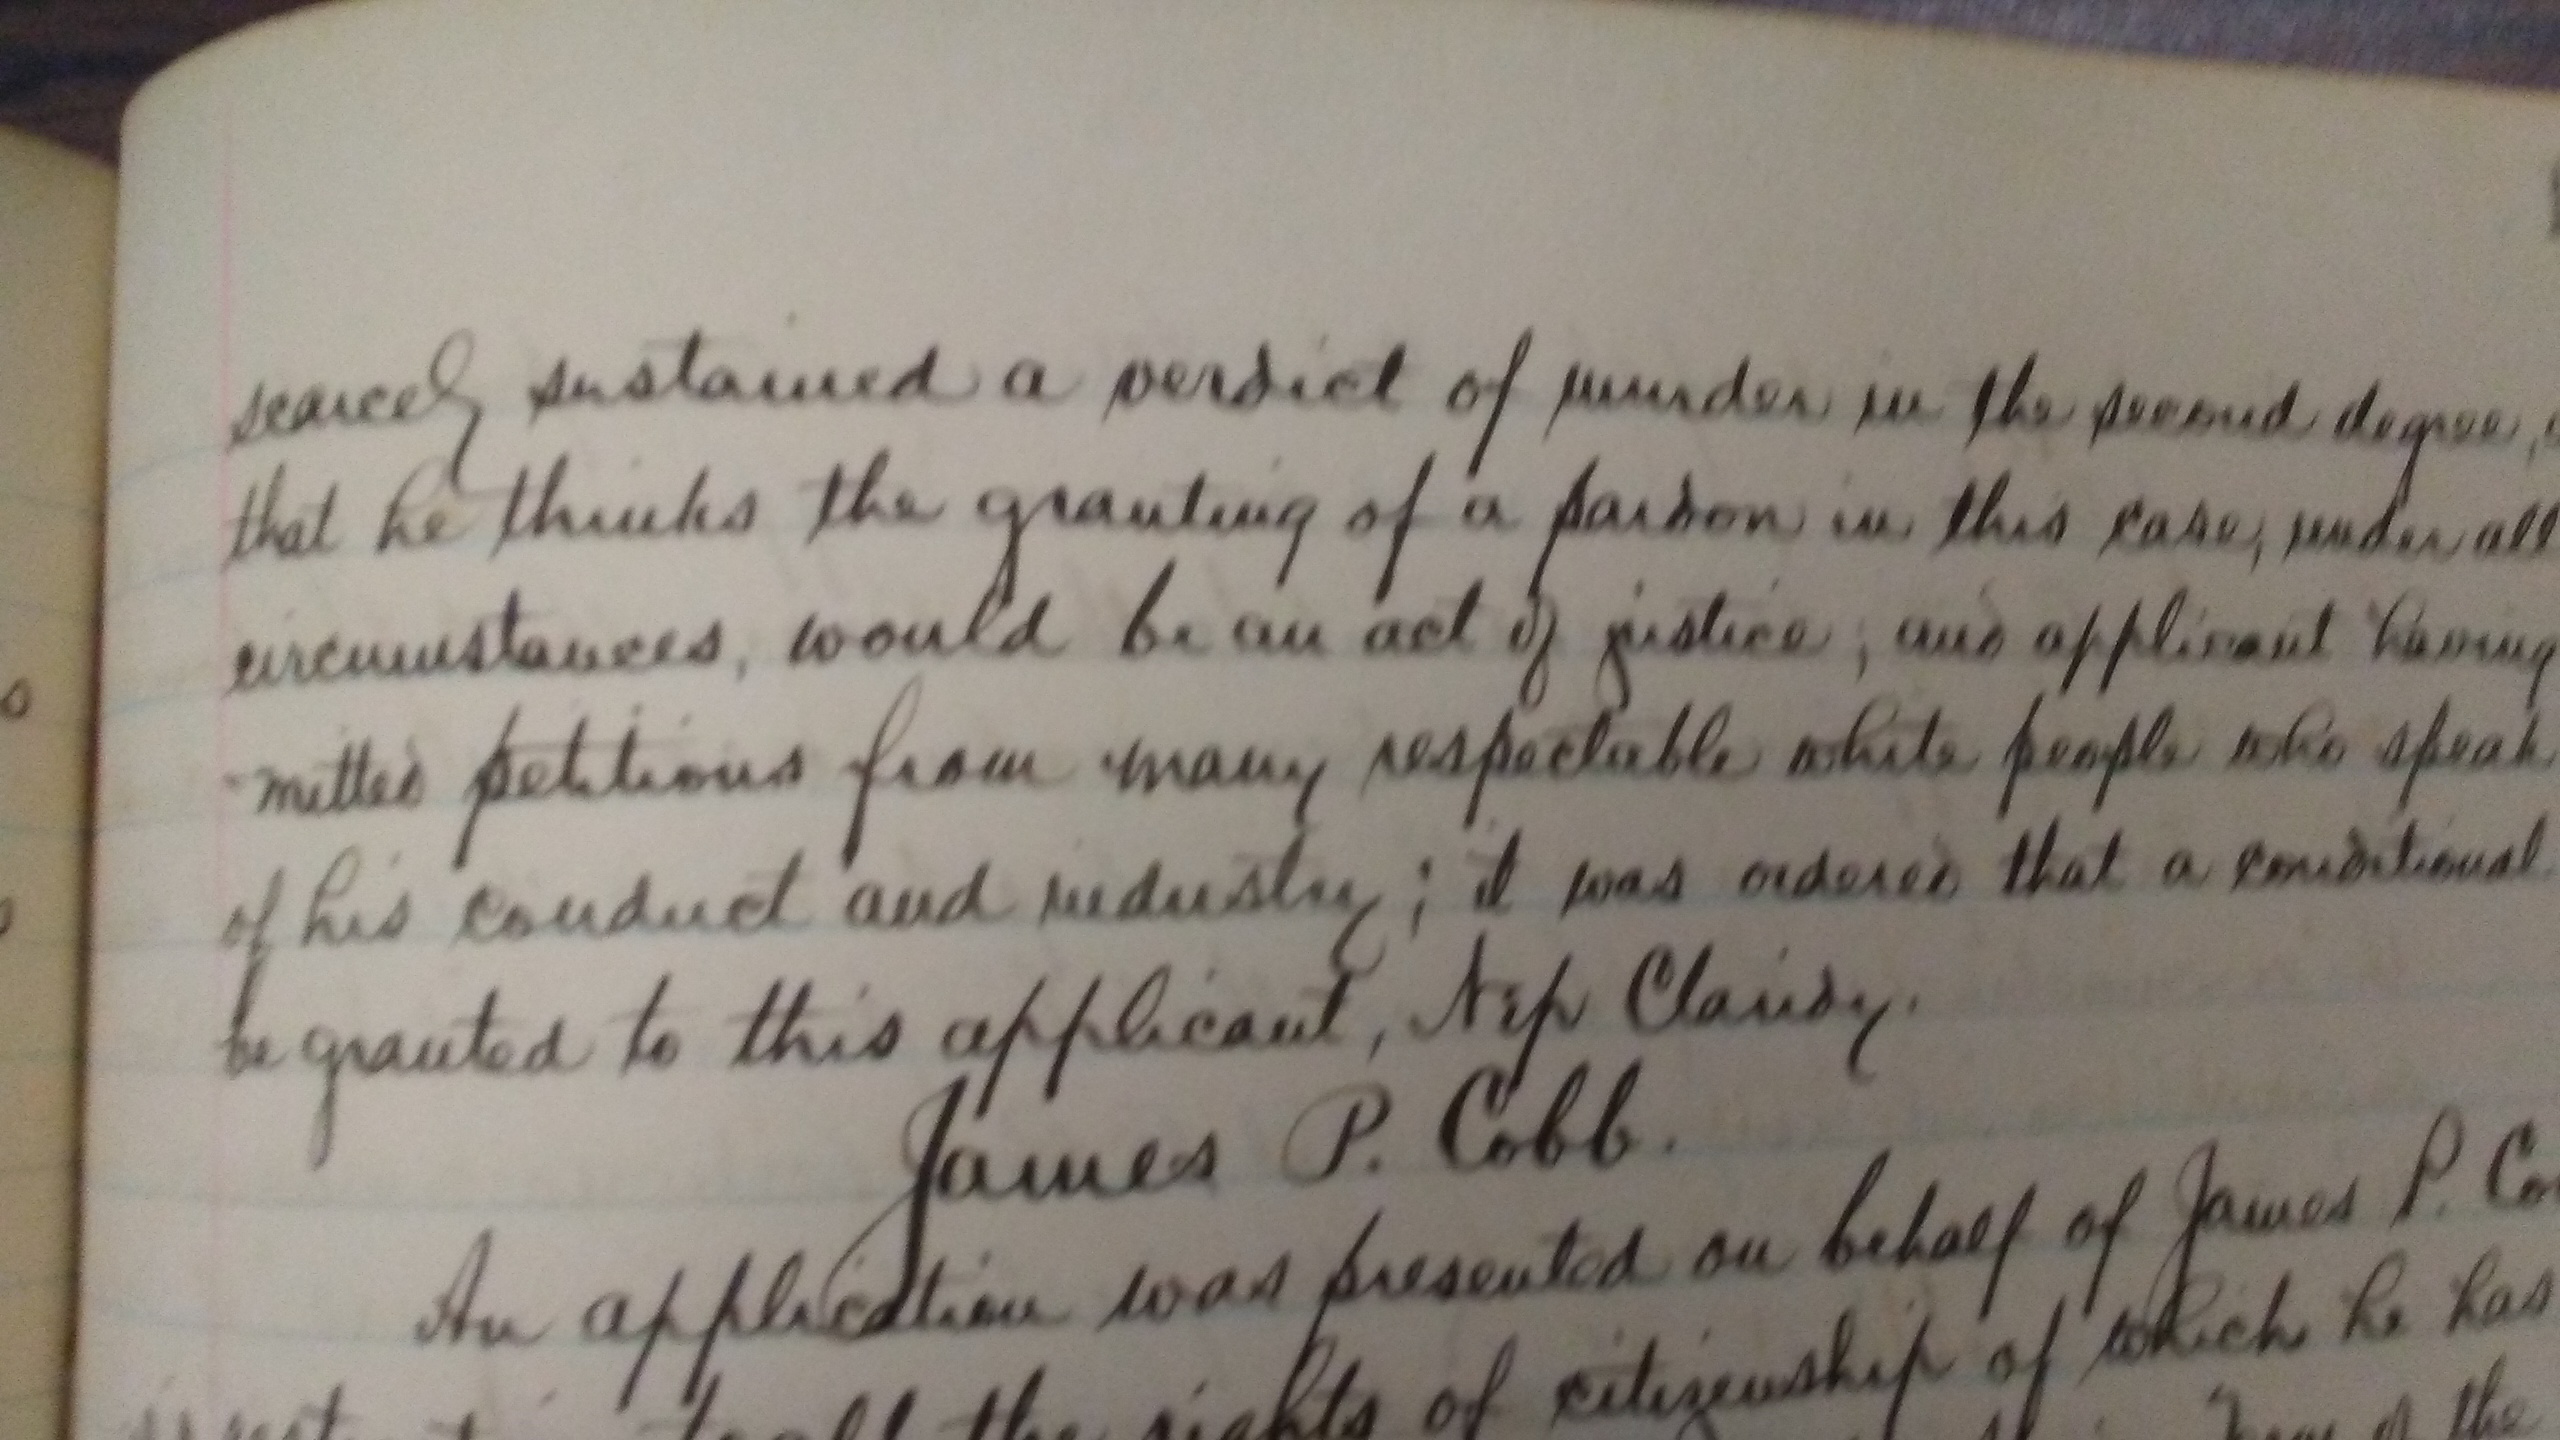 scarcely sustained a verdict of murder in the second degree,
that he thinks the granting of a pardon in this case, under all
circumstances, would be an act of justice; and applicant having
mitted petitions from many respectable white people who speak
of his conduct and industry; it was ordered that a conditional
be granted to this applicant, Nep Clandy.
James P. Cobb.
An application was presented on behalf of James P. Co
the rights of citizenship of which he has
the